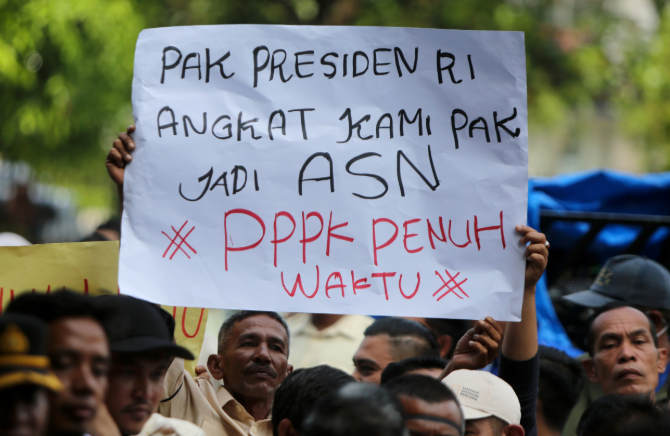 PAK PRESIDEN RI
ANGKAT KAMI PAK
JADI ASN
* PPPK PENUH
WAKTU *